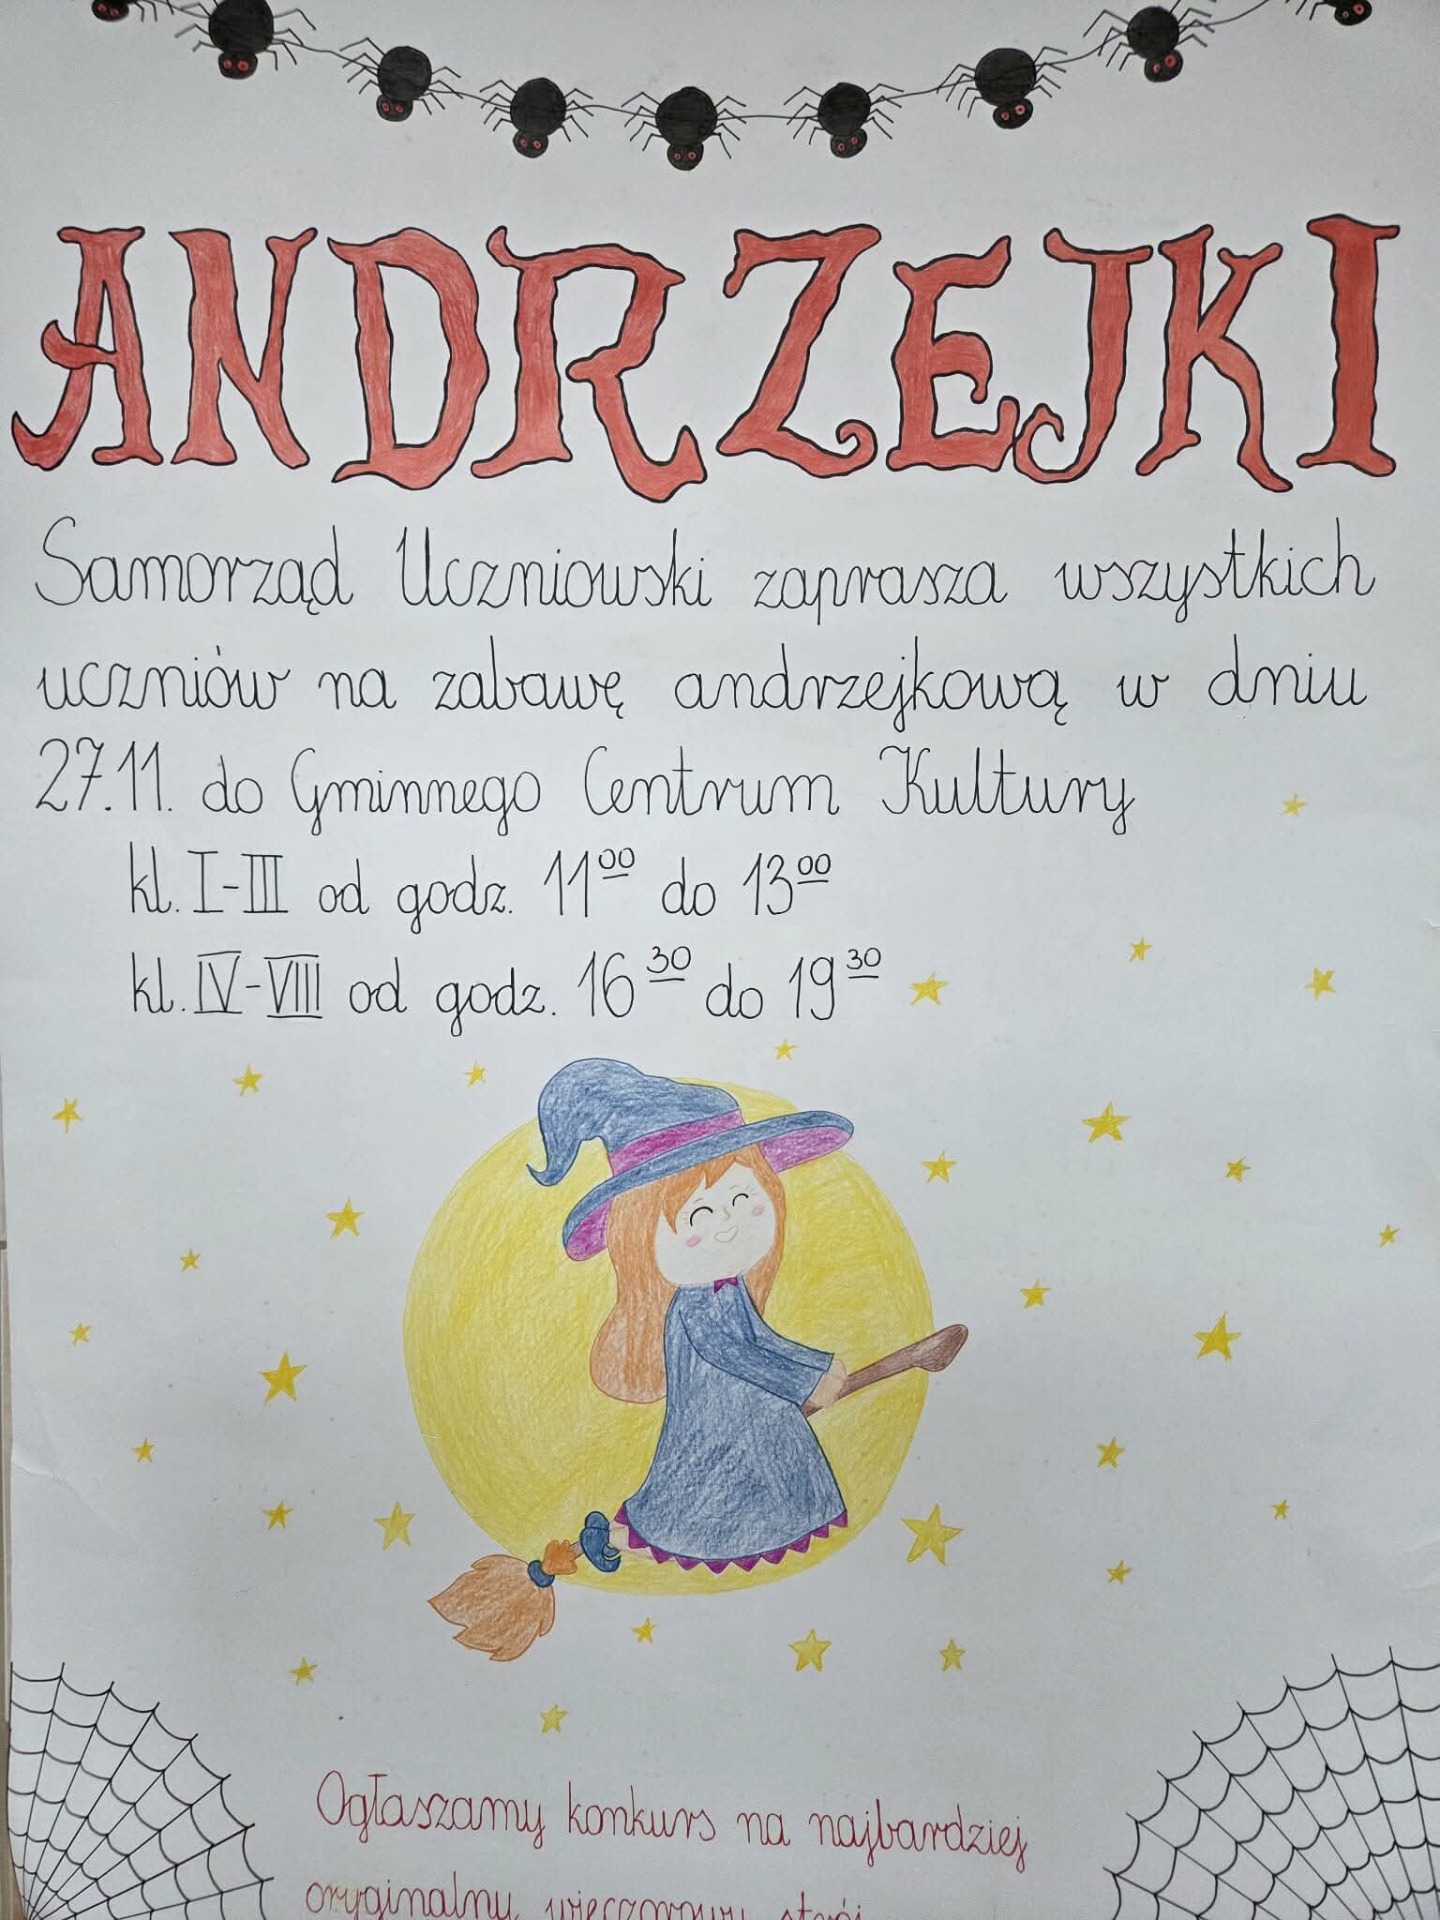 ANDRZEJKI
Samorząd Uczniowski zaprasza wszystkich
uczniów na zabawę andrzejkową w dniu
27.11. do Gminnego Centrum Kultury
kl. I-III od godz. 11⁰⁰ do 13⁰⁰
kl. IV-VIII od godz. 16³⁰ do 19³⁰
Ogłaszamy konkurs na najbardziej
oryginalny, wieczorowy strój